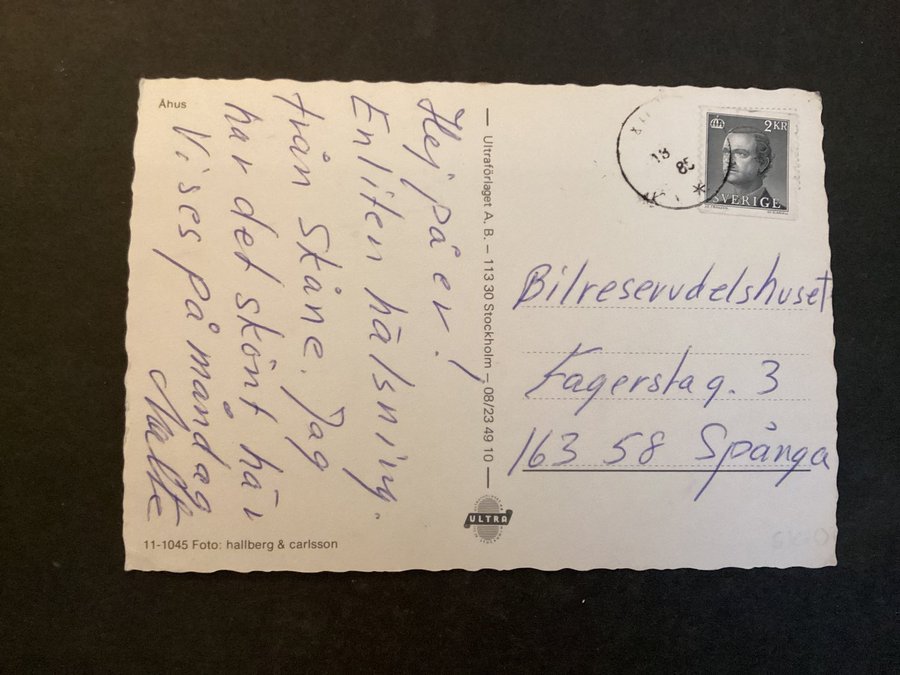 Åhus
Hej på er!
En liten hälsning
från Skåne. Jag
har det skönt här
Vi ses på måndag
Malte
11-1045 Foto: hallberg & carlsson
Ultraförlaget A. B. – 113 30 Stockholm – 08/23 49 10
ULTRA
2 KR
SVERIGE
Bilreservdelshuset
Fagerstag. 3
163 58 Spånga